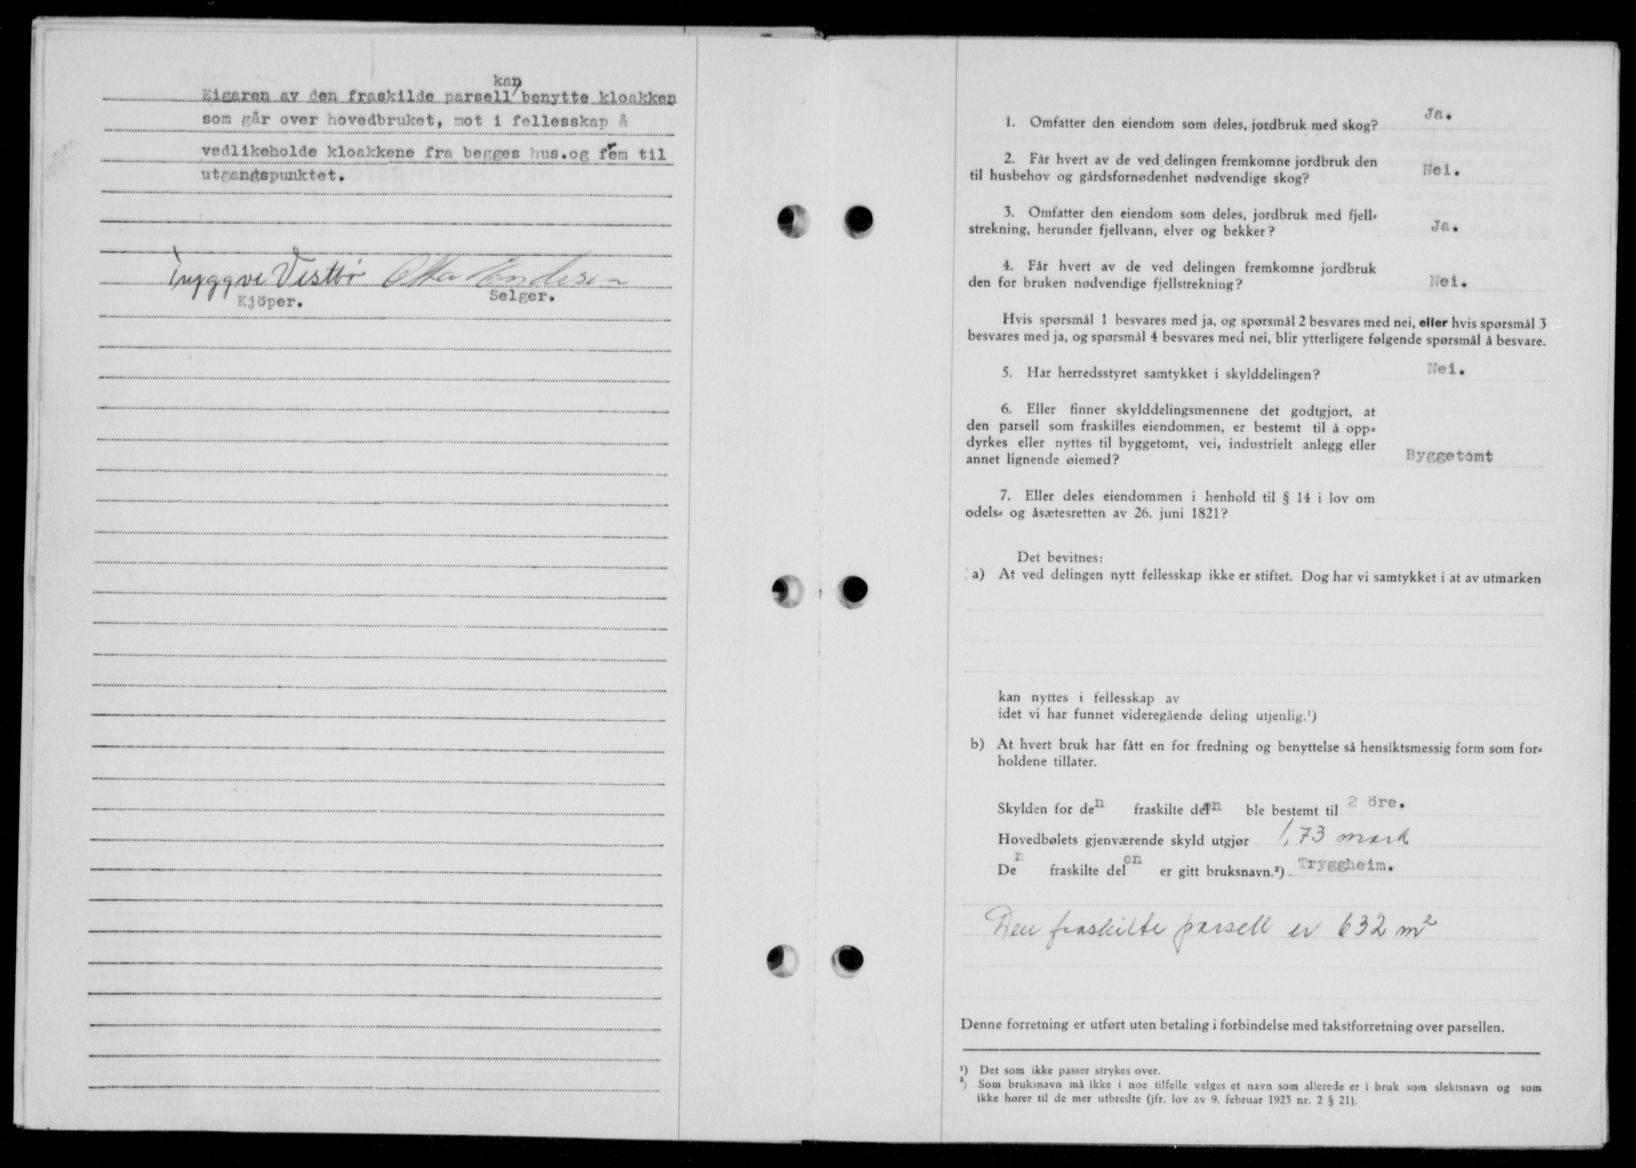 kan
Eigaren av den fraskilde parsell/benytte kloakken
som går over hovedbruket, mot i fellesskap å
vedlikeholde kloakkene fra begges hus.og frem til
utgangspunktet.
Tryggve Vistbr
Kjöper. Selger.
1. Omfatter den eiendom som deles, jordbruk med skog? Ja.
2. Får hvert av de ved delingen fremkomne jordbruk den
til husbehov og gårdsfornødenhet nødvendige skog? Nei.
3. Omfatter den eiendom som deles, jordbruk med fjell-
strekning, herunder fjellvann, elver og bekker? Ja.
4. Får hvert av de ved delingen fremkomne jordbruk
den for bruken nødvendige fjellstrekning? Nei.
Hvis spørsmål 1 besvares med ja, og spørsmål 2 besvares med nei, eller hvis spørsmål 3
besvares med ja, og spørsmål 4 besvares med nei, blir ytterligere følgende spørsmål å besvare.
5. Har herredsstyret samtykket i skylddelingen? Nei.
6. Eller finner skylddelingsmennene det godtgjort, at
den parsell som fraskilles eiendommen, er bestemt til å opp-
dyrkes eller nyttes til byggetomt, vei, industrielt anlegg eller
annet lignende øiemed? Byggetomt
7. Eller deles eiendommen i henhold til § 14 i lov om
odels- og åsætesretten av 26. juni 1821?
Det bevitnes:
a) At ved delingen nytt fellesskap ikke er stiftet. Dog har vi samtykket i at av utmarken
kan nyttes i fellesskap av
idet vi har funnet videregående deling utjenlig.¹)
b) At hvert bruk har fått en for fredning og benyttelse så hensiktsmessig form som for-
holdene tillater.
Skylden for den fraskilte delen ble bestemt til 2 öre.
Hovedbølets gjenværende skyld utgjør 1,73 mark
Den fraskilte delen er gitt bruksnavn.²) Tryggheim.
Den fraskilte parsell er 632 m²
Denne forretning er utført uten betaling i forbindelse med takstforretning over parsellen.
¹) Det som ikke passer strykes over.
²) Som bruksnavn må ikke i noe tilfelle velges et navn som allerede er i bruk som slektsnavn og som
ikke hører til de mer utbredte (jfr. lov av 9. februar 1923 nr. 2 § 21).